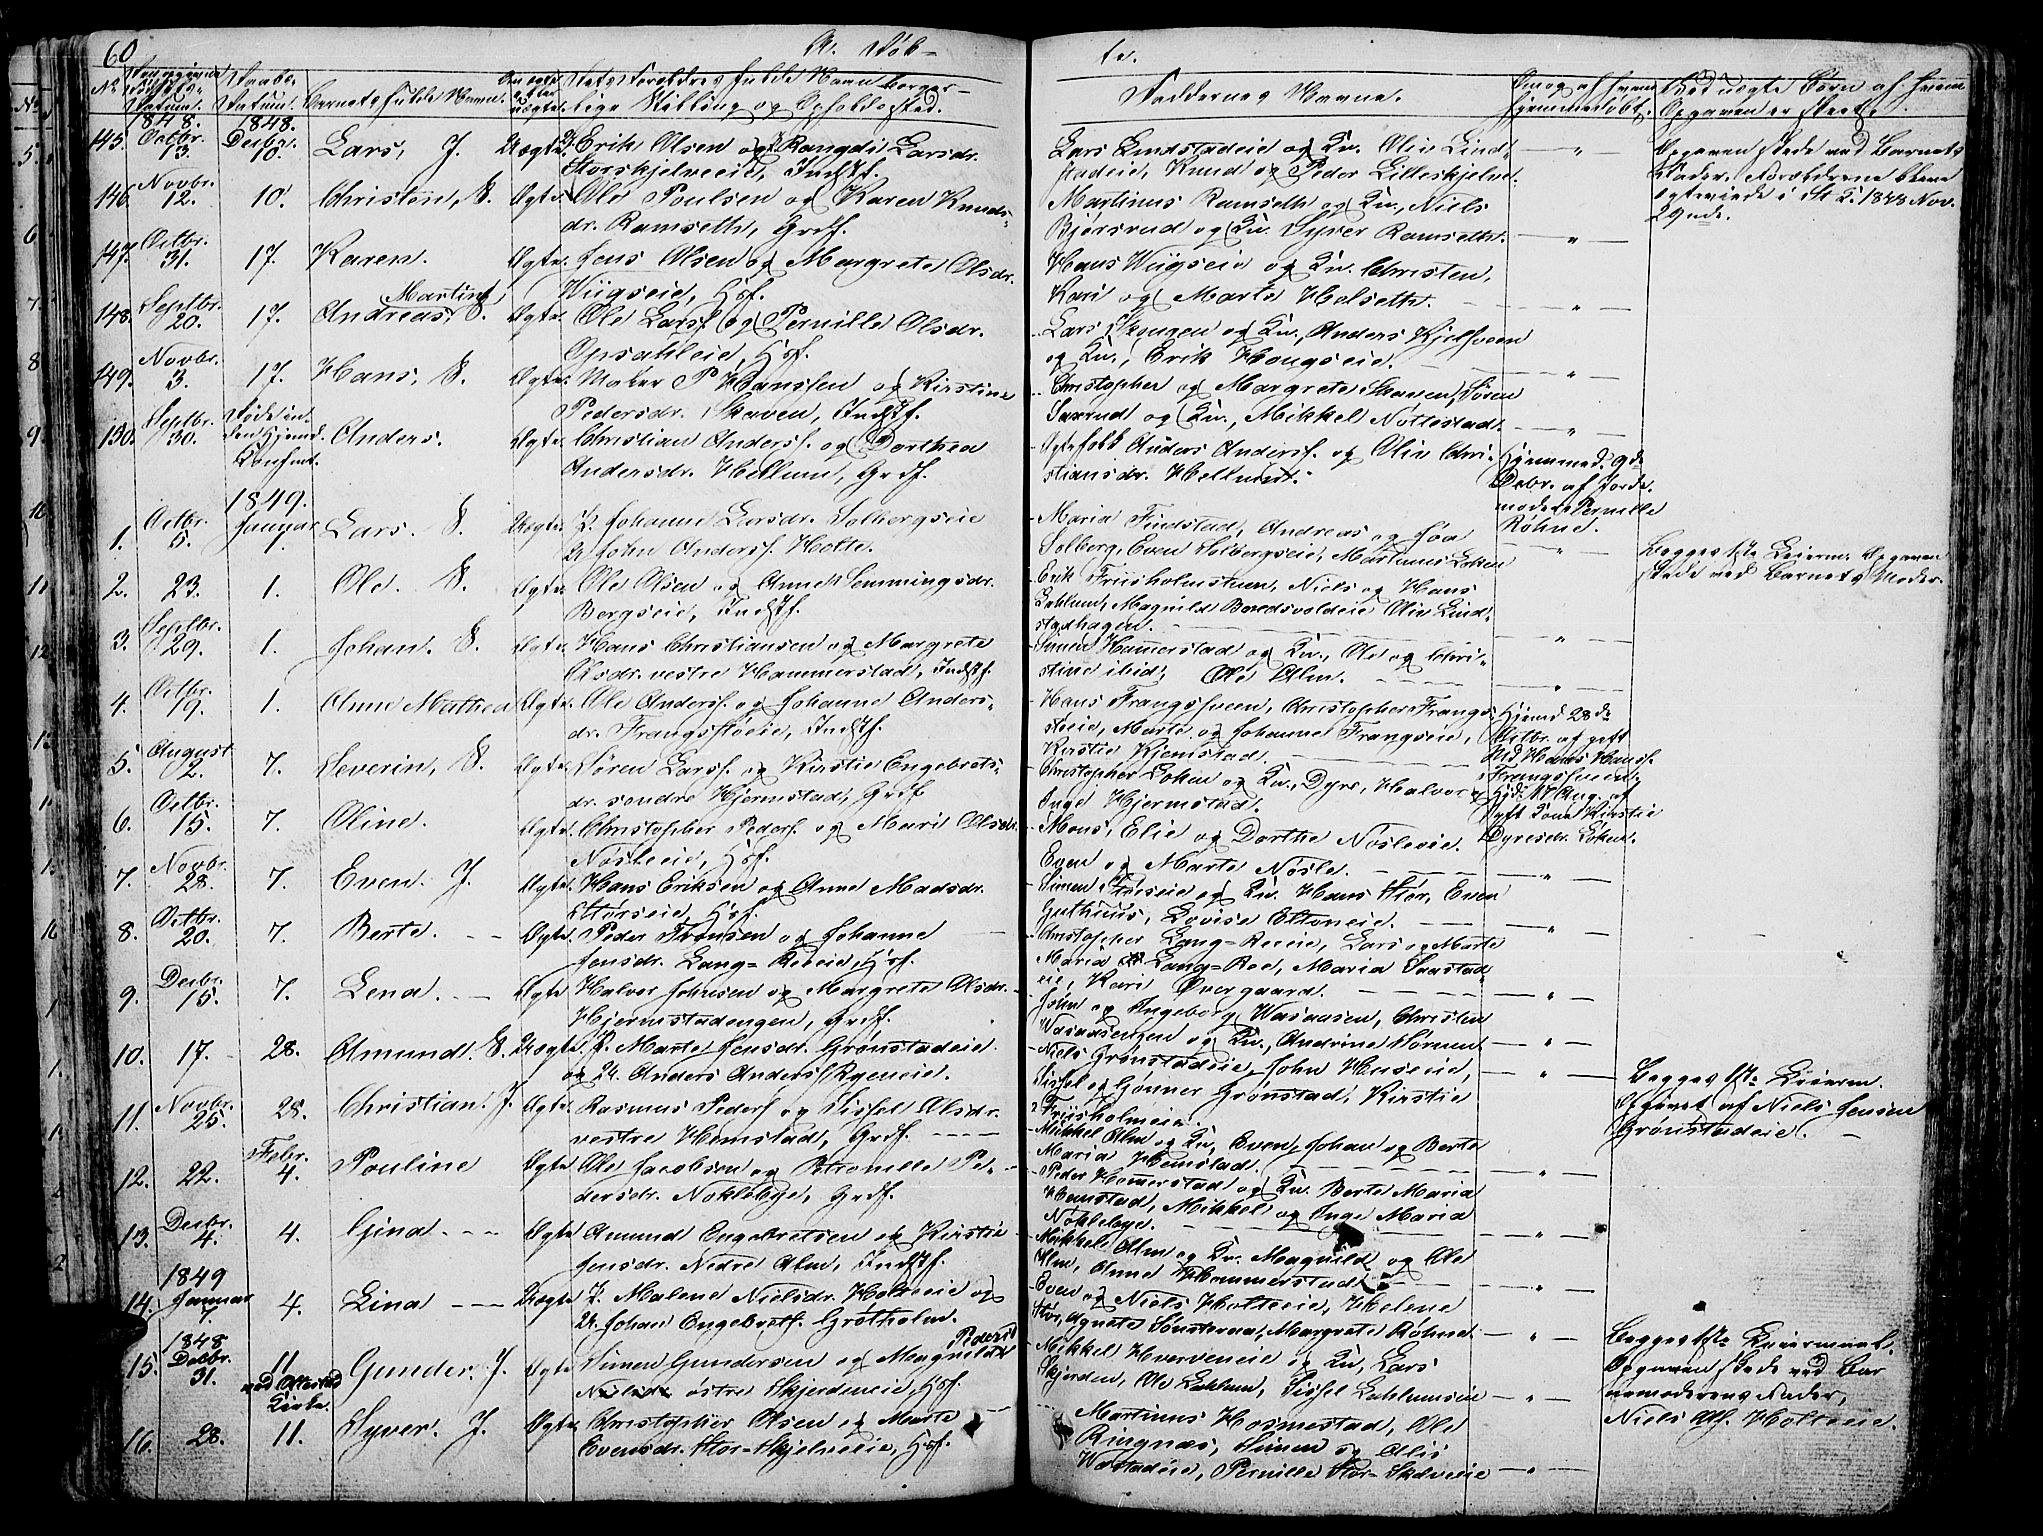 60
A. Døb-
te.
No
Daabs-
Datum.
Barnets fulde Navn.
Om ægte
eller
uægte.
Forældres fulde Navn borger-
lige Stilling og Opholdssted.
Faddernes Navne.
Om og af hvem
hjemmedøbt.
Ved uægte Børn af hvem
Opgaven er skeet.
1848.
1848.
145.
Octbr.
13.
Decbr.
10.
Lars, J.
Uægte.
Erik Olsen og Rangdi Larsdr.
Storskjelveeie, Indstf.
Lars Lindstadeie og Kv. Oliv Lind-
stadeie, Knud og Peder Lilleskjelve.
Opgaven skede ved Barnets
Fader. Forældrene bleve
ægteviede i St. K. 1848 Nov.
29nde.
146.
Novbr.
12.
10.
Christen, S.
Ægte.
Ole Poulsen og Karen Knuds-
dr. Ramseth, Grdf.
Martinus Ramseth og Kv., Niels
Bjørsrud og Kv. Syver Ramseth.
147.
Octbr.
31.
17.
Karen.
Ægte.
Jens Olsen og Margrete Olsdr.
Wiigseie, Hsf.
Hans Wiigseie og Kv. Christen,
Kari og Marte Holseth.
148.
Septbr.
20.
17.
Martin
Andreas, S.
Ægte.
Ole Larsf. og Pernille Olsdr.
Opsahleie, Hsf.
Lars Kongen og Kv., Anders Kjelsveen
og Kv., Erik Hougseie.
149.
Novbr.
3.
17.
Hans, S.
Ægte.
Maler P Hanssen og Kirstine
Pedersdr. Skaven, Indstf.
Christopher og Margrete Skaven, Søren
Saxrud og Kv., Mikkel Nøttestad.
150.
Septbr.
30.
Døde in-
den Hjemd.
Confirmt.
Anders.
Ægte.
Christian Andersf. og Dorthea
Andersdr. Hellum, Grdf.
Ægtefolk Anders Andersf. og Oliv Chri-
stiansdr. Hellum.
Hjemmed. 9de
Decbr. af Jorde-
moder Pernille
Røhne.
1849.
1.
Octbr.
5.
Januar
1.
Lars. S.
Uægte.
P. Johanne Larsdr. Solbergseie
U. John Andersf. Holte.
Maria Findstad, Andreas og Joa
Solberg, Even Solbergseie, Martinus Løken
Begges 1ste Leierm. Opgaven
skede ved Barnets Moder.
2.
23.
1.
Ole. S.
Ægte.
Ole Olsen og Anne Lemmingsdr.
Bergseie, Indstf.
Erik Friisholmstuen, Niels og Hans
Lahlum, Magnild Beredsvoldeie, Oliv Lind-
stadhagen.
3.
Septbr.
29.
1.
Johan. S.
Ægte.
Hans Christiansen og Margrete
Olsdr. vestre Hammerstad, Indstf.
Simen Hammerstad og Kv., Ole og Chri-
stine ibid, Ole Alm.
4.
Octbr.
19.
1.
Anne Mathea
Ægte.
Ole Andersf. og Johanne Anders-
dr. Frangsstøeie, Indstf.
Hans Frangsveen, Christopher Frangs-
støeie, Marte og Johanne Frangseie,
Kirstie Kjemstad.
Hjemd 28de
Octbr. af gift
Md. Hans Hansf.
Frangsveen.
5.
August
2.
7.
Severin, S.
Ægte.
Søren Larsf. og Kirstie Engebrets-
dr. søndre Hjermstad, Grdf.
Christopher Løken og Kv., Dyre, Halvor og
Inge Hjermstad.
Hjd. 17 Aug. af
Gift Kone Kirstie
Dyresdr. Løken.
6.
Octbr.
15.
7.
Oline.
Ægte.
Christopher Pedersf. og Mari Olsdr.
Nøsleeie, Hsf.
Mons, Elie og Dorthe Nøsleeie.
Even og Marte Nøsle.
7.
Novbr.
28.
7.
Even. J.
Ægte.
Hans Eriksen og Anne Madsdr.
Størseie, Hsf.
Simen Størseie og Kv. Hans Stør, Even
Guthuus, Lovise Ettoneie.
8.
Octbr.
20.
7.
Berte.
Ægte.
Peder Tronsen og Johanne
Jensdr. Lang-Reeie, Hsf.
Christopher Lang-Reeie, Lars og Marte
Maria Lang-Ree, Maria Saastad-
eie, Kari Øvergaard.
9.
Decbr.
15.
7.
Lena.
Ægte
Halvor Johnsen og Margrete Olsdr.
Hjermstadengen, Grdf.
John og Ingeborg Wasaasen, Christen
Wasaasengen og Kv., Andrine Sørum.
10.
17.
28.
Amund. S.
Uægte.
P. Marte Jensdr. Grønstadeie
og U. Anders Andersf. Ryeneie.
Niels Grønstadeie, John Huseeie,
Sissel og Gunner Grønstad, Kirstie
Friisholmeie.
Begges 1ste Leierm.
Opgivet af Niels Jensen
Grønstadeie.
11.
Novbr.
25.
28.
Christian. J.
Ægte.
Rasmus Pedersf. og Sissel Olsdr.
vestre Hemstad, Grdf.
Mikkel Alm og Kv., Even, Johan og Berte
Maria Hemstad.
12.
22.
Febr.
4.
Pauline
Ægte.
Ole Jacobsen og Petronille Pe-
dersdr. Nøkleby, Grdf.
Peder Hommerstad og Kv. Berte Maria
Hemstad, Mikkel og Inge Maria
Nøkleby.
13.
Decbr.
4.
4.
Gina.
Ægte
Amund Engebretsen og Kirstie
Jensdr. Nedre Alm, Indstf.
Mikkel Alm og Kv. Magnild og Ole
Alm, Anne Hammerstad.
1849
14.
Januar
7.
4.
Lina
Uægte
P. Malene Nielsdr. Holteeie og
U. Johan Engebretf. Grøtholm.
Even og Niels Holteeie, Helene
Stør, Agnete Sønsteraa, Margrete Røhne.
Begges 1ste Leiermaal.
Opgaven skede ved Bar-
nemoderens Fader,
Niels Olf. Holteeie.
1848
15.
Decbr.
31.
11
ved Ottestad
Kirke.
Gunder. J.
Ægte
Simen Gundersen og Magnild Pedersd
østre Skjerdeneie, Hsf.
Mikkel Hverveneie og Kv., Lars
Skjerden, Ole Lahlum, Sissel Lahlumseie
16.
28.
11.
Syver. J.
Ægte.
Christopher Olsen og Marte
Evensdr. Stor-Skjelveeie, Hsf.
Martinus Hosmestad, Ole
Ringnæs, Simen og Olis
Wostadeie, Pernille Stor-Skelveeie